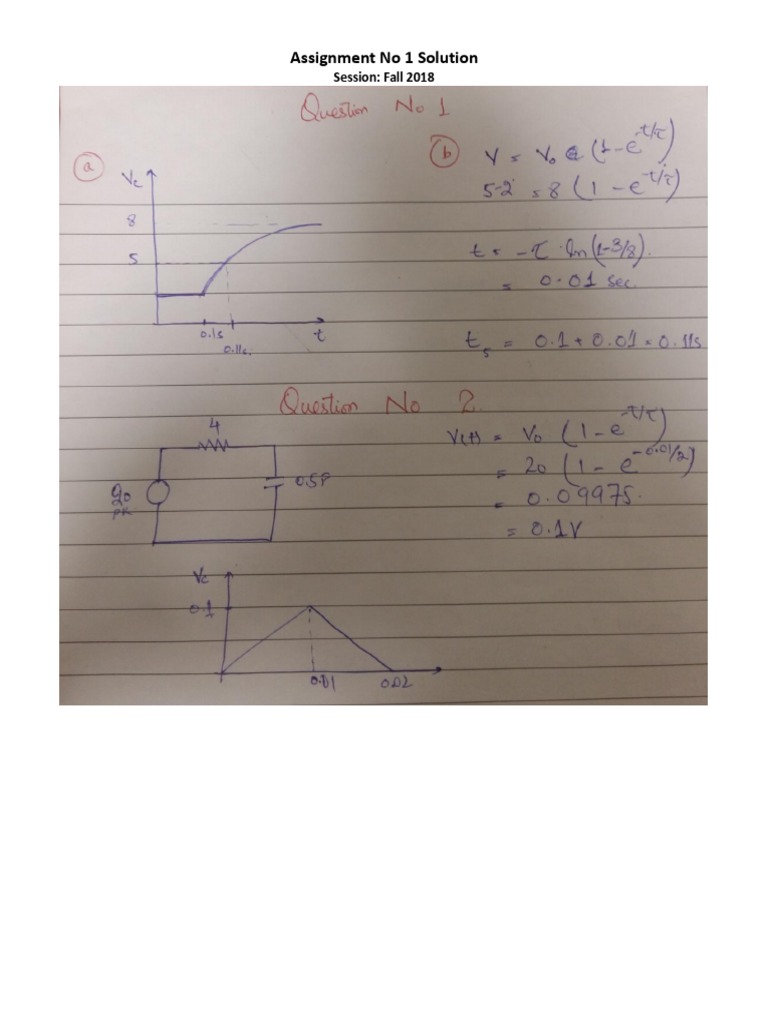 Assignment No 1 Solution
Session: Fall 2018
Question No 1
a
Vc
8
5
0.1s
0.11s.
t
b
V = V₀ (1-e^-t/τ)
5-2 = 8 (1 - e^-t/τ)
t = -τ ln(1-3/8).
= 0.01 sec.
t₅ = 0.1 + 0.01 = 0.11s
Question No 2.
4
0.5F
pk
V(t) = V₀ (1-e^-t/τ)
= 20 (1 - e^-0.01/2)
= 0.09975.
= 0.1V
Vc
0.1
0.01
0.02